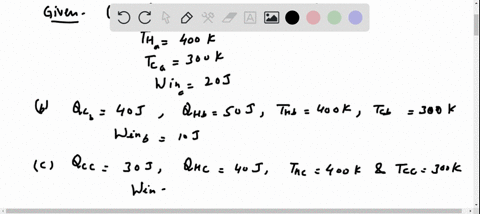 Given. (
T_Ha = 400 K
T_Ca = 300 K
Win_a = 20 J
(b) Q_Cb = 40 J , Q_Hb = 50 J , T_Hb = 400 K , T_Cb = 300 K
Win_b = 10 J
(c) Q_CC = 30 J, Q_HC = 40 J, T_HC = 400 K & T_CC = 300 K
Win -